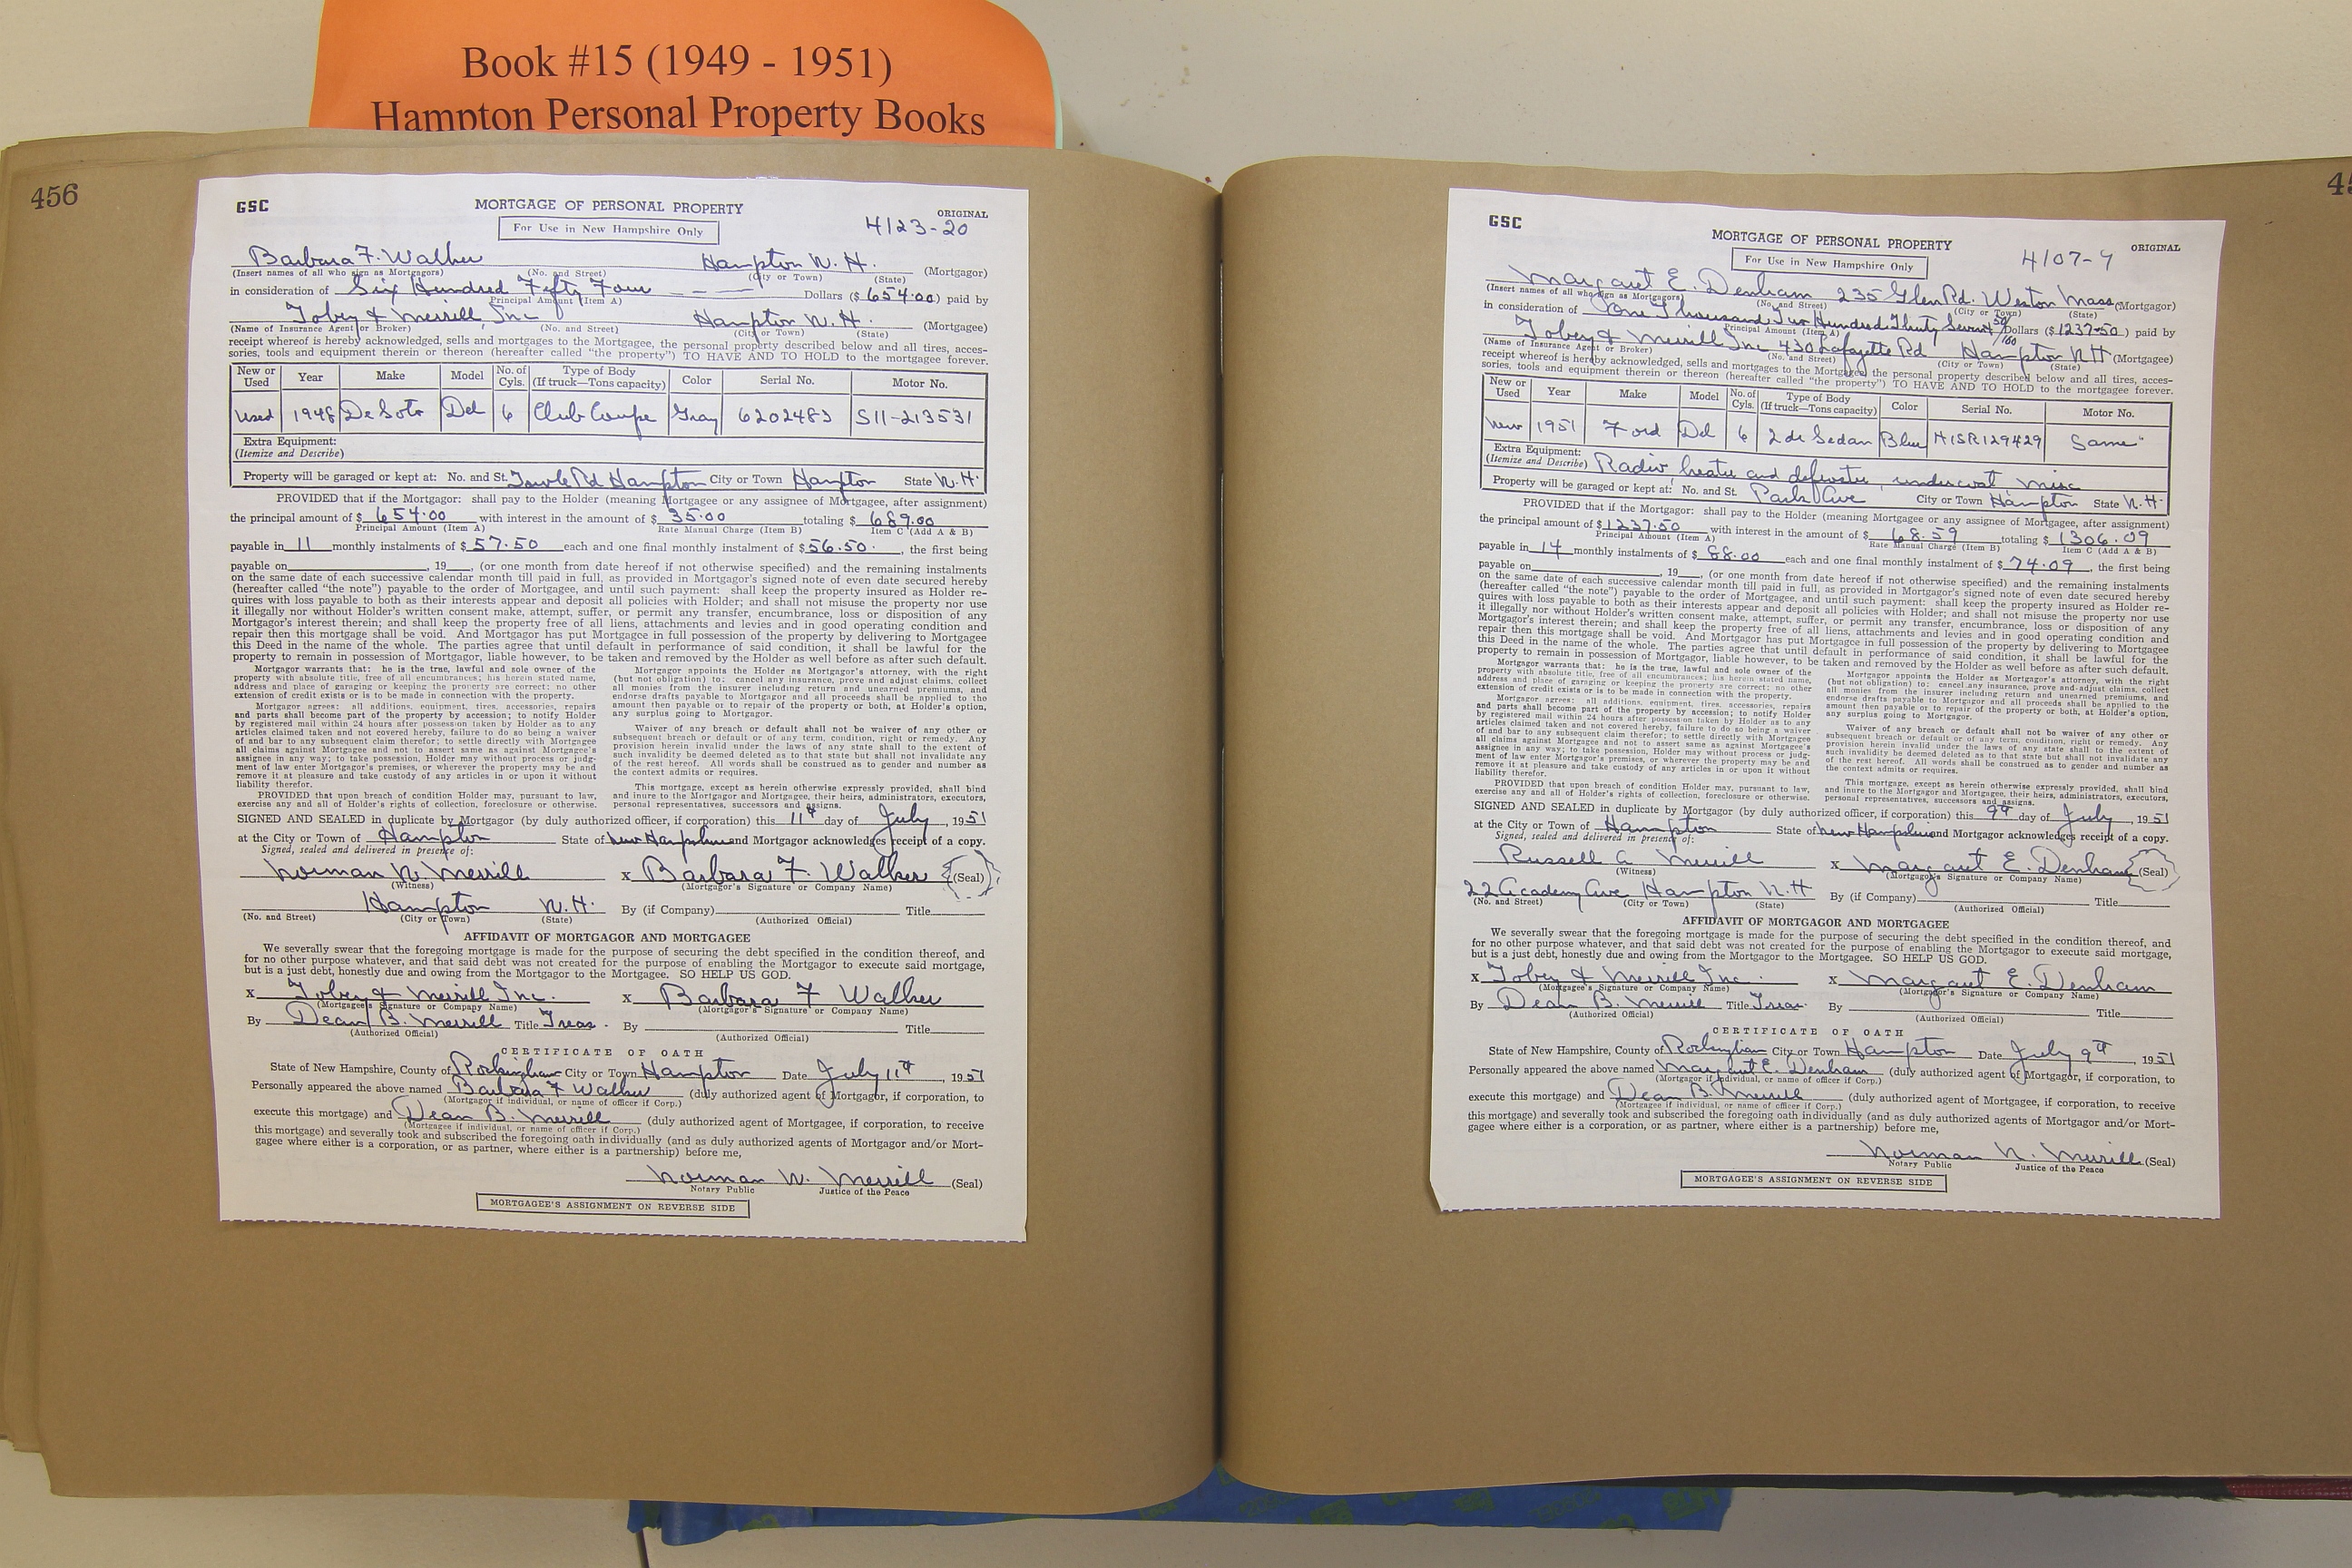 Book #15 (1949 - 1951)
Hampton Personal Property Books
456
GSC
MORTGAGE OF PERSONAL PROPERTY
ORIGINAL
For Use in New Hampshire Only
4123-20
Barbara F. Walker Hampton N. H. (Mortgagor)
(Insert names of all who sign as Mortgagors) (No. and Street) (City or Town) (State)
in consideration of Six Hundred Fifty Four — — — Dollars ($ 654.00) paid by
Principal Amount (Item A)
Tobey & Merrill, Inc Hampton N. H. (Mortgagee)
(Name of Insurance Agent or Broker) (No. and Street) (City or Town) (State)
receipt whereof is hereby acknowledged, sells and mortgages to the Mortgagee, the personal property described below and all tires, acces-
sories, tools and equipment therein or thereon (hereafter called "the property") TO HAVE AND TO HOLD to the mortgagee forever.
New or Used Year Make Model No. of Cyls. Type of Body (If truck—Tons capacity) Color Serial No. Motor No.
Used 1948 De Soto Del 6 Club Coupe Gray 6202483 S11-213531
Extra Equipment:
(Itemize and Describe)
Property will be garaged or kept at: No. and St. Towle Rd Hampton City or Town Hampton State N. H.
PROVIDED that if the Mortgagor: shall pay to the Holder (meaning Mortgagee or any assignee of Mortgagee, after assignment)
the principal amount of $ 654.00 with interest in the amount of $ 35.00 totaling $ 689.00
Principal Amount (Item A) Rate Manual Charge (Item B) Item C (Add A & B)
payable in 11 monthly instalments of $ 57.50 each and one final monthly instalment of $ 56.50, the first being
payable on , 19 , (or one month from date hereof if not otherwise specified) and the remaining instalments
on the same date of each successive calendar month till paid in full, as provided in Mortgagor's signed note of even date secured hereby
(hereafter called "the note") payable to the order of Mortgagee, and until such payment: shall keep the property insured as Holder re-
quires with loss payable to both as their interests appear and deposit all policies with Holder; and shall not misuse the property nor use
it illegally nor without Holder's written consent make, attempt, suffer, or permit any transfer, encumbrance, loss or disposition of any
Mortgagor's interest therein; and shall keep the property free of all liens, attachments and levies and in good operating condition and
repair then this mortgage shall be void. And Mortgagor has put Mortgagee in full possession of the property by delivering to Mortgagee
this Deed in the name of the whole. The parties agree that until default in performance of said condition, it shall be lawful for the
property to remain in possession of Mortgagor, liable however, to be taken and removed by the Holder as well before as after such default.
Mortgagor warrants that: he is the true, lawful and sole owner of the
property with absolute title, free of all encumbrances; his herein stated name,
address and place of garaging or keeping the property are correct; no other
extension of credit exists or is to be made in connection with the property.
Mortgagor agrees: all additions, equipment, tires, accessories, repairs
and parts shall become part of the property by accession; to notify Holder
by registered mail within 24 hours after possession taken by Holder as to any
articles claimed taken and not covered hereby, failure to do so being a waiver
of and bar to any subsequent claim therefor; to settle directly with Mortgagee
all claims against Mortgagee and not to assert same as against Mortgagee's
assignee in any way; to take possession, Holder may without process or judg-
ment of law enter Mortgagor's premises, or wherever the property may be and
remove it at pleasure and take custody of any articles in or upon it without
liability therefor.
PROVIDED that upon breach of condition Holder may, pursuant to law,
exercise any and all of Holder's rights of collection, foreclosure or otherwise.
Mortgagor appoints the Holder as Mortgagor's attorney, with the right
(but not obligation) to: cancel any insurance, prove and adjust claims, collect
all monies from the insurer including return and unearned premiums, and
endorse drafts payable to Mortgagor and all proceeds shall be applied to the
amount then payable or to repair of the property or both, at Holder's option,
any surplus going to Mortgagor.
Waiver of any breach or default shall not be waiver of any other or
subsequent breach or default or of any term, condition, right or remedy. Any
provision herein invalid under the laws of any state shall to the extent of
such invalidity be deemed deleted as to that state but shall not invalidate any
of the rest hereof. All words shall be construed as to gender and number as
the context admits or requires.
This mortgage, except as herein otherwise expressly provided, shall bind
and inure to the Mortgagor and Mortgagee, their heirs, administrators, executors,
personal representatives, successors and assigns.
SIGNED AND SEALED in duplicate by Mortgagor (by duly authorized officer, if corporation) this 11th day of July, 1951
at the City or Town of Hampton State of New Hampshire and Mortgagor acknowledges receipt of a copy.
Signed, sealed and delivered in presence of:
Norman N. Merrill x Barbara F. Walker (Seal)
(Witness) (Mortgagor's Signature or Company Name)
Hampton N. H. By (if Company) Title
(No. and Street) (City or Town) (State) (Authorized Official)
AFFIDAVIT OF MORTGAGOR AND MORTGAGEE
We severally swear that the foregoing mortgage is made for the purpose of securing the debt specified in the condition thereof, and
for no other purpose whatever, and that said debt was not created for the purpose of enabling the Mortgagor to execute said mortgage,
but is a just debt, honestly due and owing from the Mortgagor to the Mortgagee. SO HELP US GOD.
x Tobey & Merrill Inc. x Barbara F Walker
(Mortgagee's Signature or Company Name) (Mortgagor's Signature or Company Name)
By Dean B. Merrill Title Treas. By Title
(Authorized Official) (Authorized Official)
CERTIFICATE OF OATH
State of New Hampshire, County of Rockingham City or Town Hampton Date July 11th, 1951
Personally appeared the above named Barbara F Walker (duly authorized agent of Mortgagor, if corporation, to
(Mortgagor if individual, or name of officer if Corp.)
execute this mortgage) and Dean B. Merrill (duly authorized agent of Mortgagee, if corporation, to receive
(Mortgagee if individual, or name of officer if Corp.)
this mortgage) and severally took and subscribed the foregoing oath individually (and as duly authorized agents of Mortgagor and/or Mort-
gagee where either is a corporation, or as partner, where either is a partnership) before me,
Norman N. Merrill (Seal)
Notary Public Justice of the Peace
MORTGAGEE'S ASSIGNMENT ON REVERSE SIDE
45
GSC
MORTGAGE OF PERSONAL PROPERTY
ORIGINAL
For Use in New Hampshire Only
4107-9
Margaret E. Denham 235 Glen Rd. Weston Mass (Mortgagor)
(Insert names of all who sign as Mortgagors) (No. and Street) (City or Town) (State)
in consideration of One Thousand Two Hundred Thirty Seven 50/100 Dollars ($ 1237.50) paid by
Principal Amount (Item A)
Tobey & Merrill Inc 430 Lafayette Rd Hampton N H (Mortgagee)
(Name of Insurance Agent or Broker) (No. and Street) (City or Town) (State)
receipt whereof is hereby acknowledged, sells and mortgages to the Mortgagee, the personal property described below and all tires, acces-
sories, tools and equipment therein or thereon (hereafter called "the property") TO HAVE AND TO HOLD to the mortgagee forever.
New or Used Year Make Model No. of Cyls. Type of Body (If truck—Tons capacity) Color Serial No. Motor No.
New 1951 Ford Del 6 2 dr Sedan Blue H1SR129429 Same
Extra Equipment:
(Itemize and Describe) Radio, heater and defroster, undercoat, misc
Property will be garaged or kept at: No. and St. Park Ave City or Town Hampton State N. H.
PROVIDED that if the Mortgagor: shall pay to the Holder (meaning Mortgagee or any assignee of Mortgagee, after assignment)
the principal amount of $ 1237.50 with interest in the amount of $ 68.59 totaling $ 1306.09
Principal Amount (Item A) Rate Manual Charge (Item B) Item C (Add A & B)
payable in 14 monthly instalments of $ 88.00 each and one final monthly instalment of $ 74.09, the first being
payable on , 19 , (or one month from date hereof if not otherwise specified) and the remaining instalments
on the same date of each successive calendar month till paid in full, as provided in Mortgagor's signed note of even date secured hereby
(hereafter called "the note") payable to the order of Mortgagee, and until such payment: shall keep the property insured as Holder re-
quires with loss payable to both as their interests appear and deposit all policies with Holder; and shall not misuse the property nor use
it illegally nor without Holder's written consent make, attempt, suffer, or permit any transfer, encumbrance, loss or disposition of any
Mortgagor's interest therein; and shall keep the property free of all liens, attachments and levies and in good operating condition and
repair then this mortgage shall be void. And Mortgagor has put Mortgagee in full possession of the property by delivering to Mortgagee
this Deed in the name of the whole. The parties agree that until default in performance of said condition, it shall be lawful for the
property to remain in possession of Mortgagor, liable however, to be taken and removed by the Holder as well before as after such default.
Mortgagor warrants that: he is the true, lawful and sole owner of the
property with absolute title, free of all encumbrances; his herein stated name,
address and place of garaging or keeping the property are correct; no other
extension of credit exists or is to be made in connection with the property.
Mortgagor agrees: all additions, equipment, tires, accessories, repairs
and parts shall become part of the property by accession; to notify Holder
by registered mail within 24 hours after possession taken by Holder as to any
articles claimed taken and not covered hereby, failure to do so being a waiver
of and bar to any subsequent claim therefor; to settle directly with Mortgagee
all claims against Mortgagee and not to assert same as against Mortgagee's
assignee in any way; to take possession, Holder may without process or judg-
ment of law enter Mortgagor's premises, or wherever the property may be and
remove it at pleasure and take custody of any articles in or upon it without
liability therefor.
PROVIDED that upon breach of condition Holder may, pursuant to law,
exercise any and all of Holder's rights of collection, foreclosure or otherwise.
Mortgagor appoints the Holder as Mortgagor's attorney, with the right
(but not obligation) to: cancel any insurance, prove and adjust claims, collect
all monies from the insurer including return and unearned premiums, and
endorse drafts payable to Mortgagor and all proceeds shall be applied to the
amount then payable or to repair of the property or both, at Holder's option,
any surplus going to Mortgagor.
Waiver of any breach or default shall not be waiver of any other or
subsequent breach or default or of any term, condition, right or remedy. Any
provision herein invalid under the laws of any state shall to the extent of
such invalidity be deemed deleted as to that state but shall not invalidate any
of the rest hereof. All words shall be construed as to gender and number as
the context admits or requires.
This mortgage, except as herein otherwise expressly provided, shall bind
and inure to the Mortgagor and Mortgagee, their heirs, administrators, executors,
personal representatives, successors and assigns.
SIGNED AND SEALED in duplicate by Mortgagor (by duly authorized officer, if corporation) this 9th day of July, 1951
at the City or Town of Hampton State of New Hampshire and Mortgagor acknowledges receipt of a copy.
Signed, sealed and delivered in presence of:
Russell A Merrill x Margaret E. Denham (Seal)
(Witness) (Mortgagor's Signature or Company Name)
22 Academy Ave Hampton N. H By (if Company) Title
(No. and Street) (City or Town) (State) (Authorized Official)
AFFIDAVIT OF MORTGAGOR AND MORTGAGEE
We severally swear that the foregoing mortgage is made for the purpose of securing the debt specified in the condition thereof, and
for no other purpose whatever, and that said debt was not created for the purpose of enabling the Mortgagor to execute said mortgage,
but is a just debt, honestly due and owing from the Mortgagor to the Mortgagee. SO HELP US GOD.
x Tobey & Merrill Inc. x Margaret E. Denham
(Mortgagee's Signature or Company Name) (Mortgagor's Signature or Company Name)
By Dean B. Merrill Title Treas. By Title
(Authorized Official) (Authorized Official)
CERTIFICATE OF OATH
State of New Hampshire, County of Rockingham City or Town Hampton Date July 9th, 1951
Personally appeared the above named Margaret E. Denham (duly authorized agent of Mortgagor, if corporation, to
(Mortgagor if individual, or name of officer if Corp.)
execute this mortgage) and Dean B. Merrill (duly authorized agent of Mortgagee, if corporation, to receive
(Mortgagee if individual, or name of officer if Corp.)
this mortgage) and severally took and subscribed the foregoing oath individually (and as duly authorized agents of Mortgagor and/or Mort-
gagee where either is a corporation, or as partner, where either is a partnership) before me,
Norman N. Merrill (Seal)
Notary Public Justice of the Peace
MORTGAGEE'S ASSIGNMENT ON REVERSE SIDE